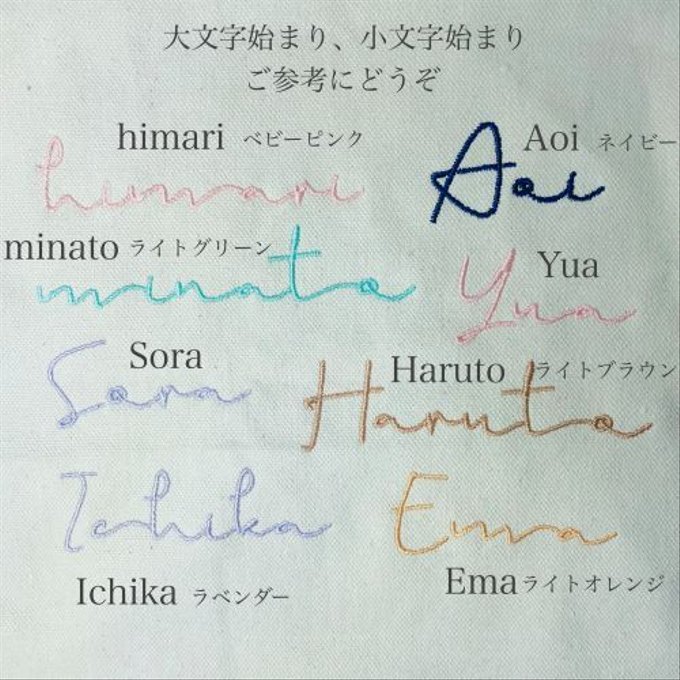 大文字始まり、小文字始まり
ご参考にどうぞ
himari ベビーピンク
himari
Aoi ネイビー
Aoi
minato ライトグリーン
minato
Yua
Yua
Sora
Sora
Haruto ライトブラウン
Haruto
Ichika
Ichika ラベンダー
Ema
Ema ライトオレンジ